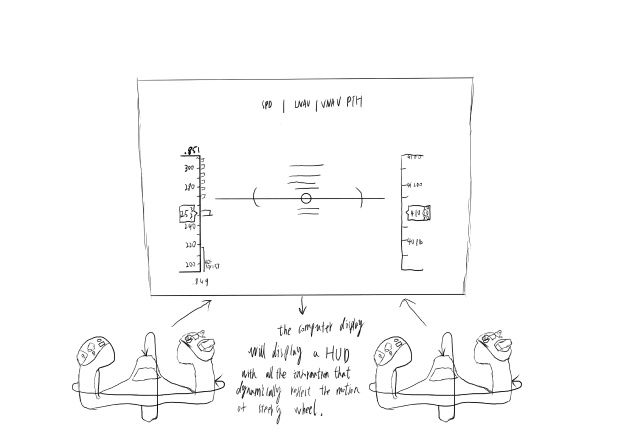 SPD | LNAV | VNAV PTH
.851
300
280
240
220
200
.849
4100
410
the computer display
will display a HUD
with all the information that
dynamically reflect the motion
of steering wheel.